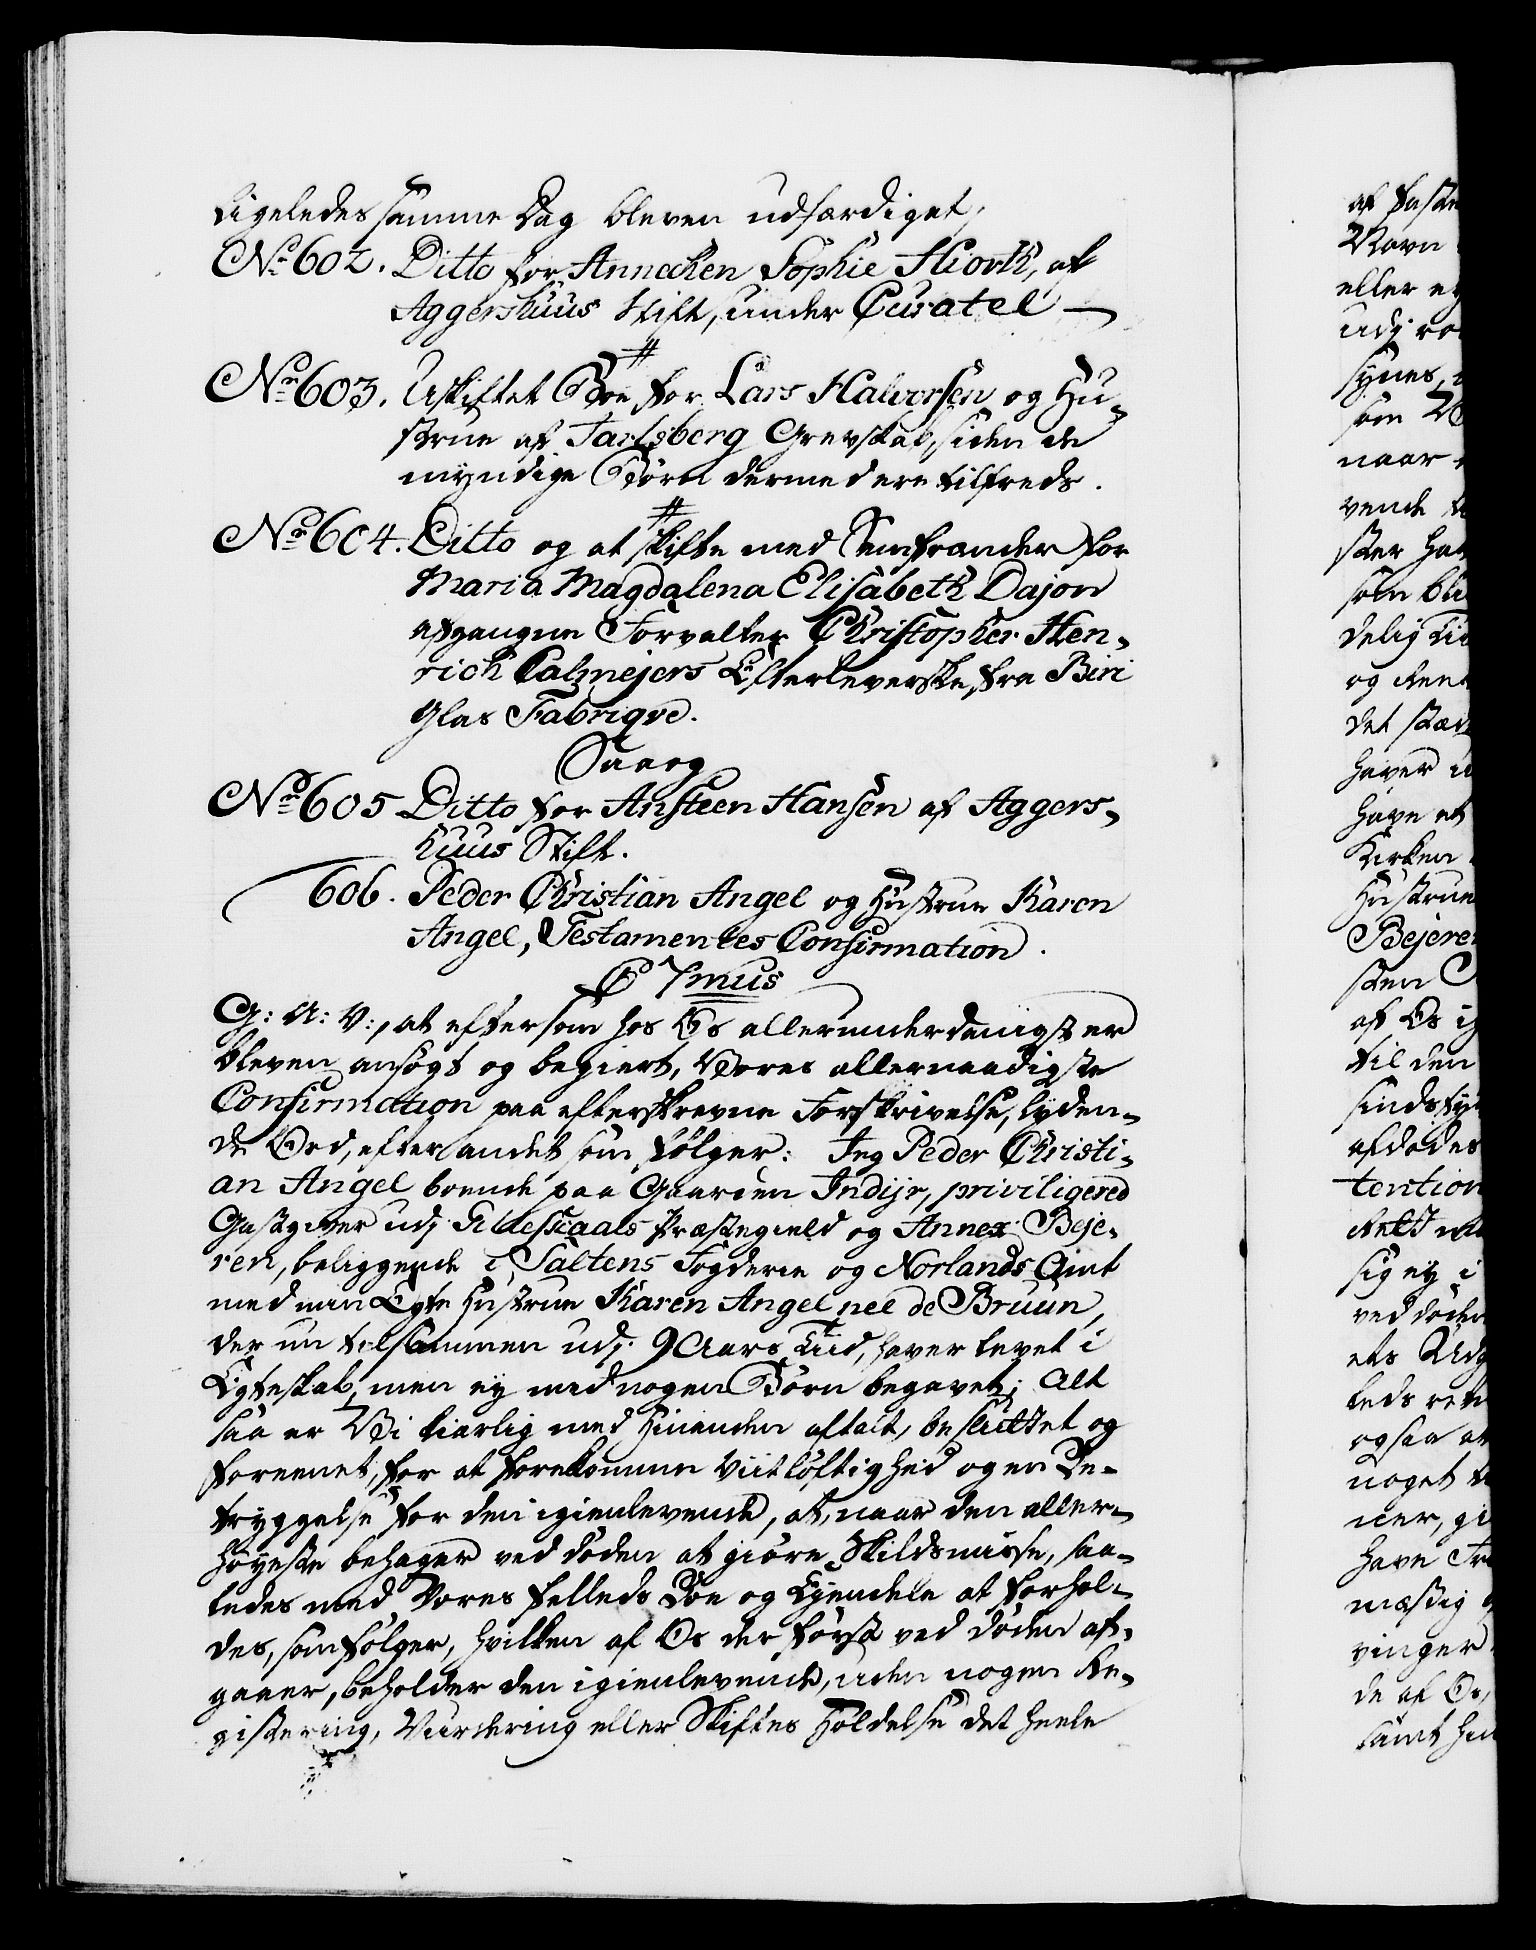 Ligeledes samme Dag bleven udfærdiget,
No 602. Ditto for Annecken Sophie Hiorth, af
Aggershuus Stift, under Curatel —
#
No 603. Uskiftet Boe for Lars Halvorsen og Hu-
strue af Jarlsberg Grevskab, siden de
myndige Børn dermed ere tilfreds.
#
No 604. Ditto og at skifte med Samfrænder for
Maria Magdalena Elisabeth Dajon
afgangne Forvalter Christopher Hen-
rich Calmejers Efterleverske, fra Biri
Glas Fabriqve.
Saa og
No 605 Ditto for Ansteen Hansen af Aggers-
huus Stift.
606. Peder Christian Angel og Hustrue Karen
Angel, Testamentes Confirmation.
C 7mus
G: A: V:, at eftersom hos Os allerunderdanigst er
bleven ansøgt og begiert, Vores allernaadigste
Confirmation paa efterskrevne Forskrivelse, lyden-
de Ord, efter andet som følger: Jeg Peder Christi-
an Angel boende paa Gaarden Indijr, priviligered
Gastgiver udj Gildeskaals Præstegield og Annex Beje-
ren, beliggende i Saltens Fogderie og Norlands Amt
med min Egte Hustrue Karen Angel nee de Bruun,
der nu tilsammen udj 9 Aars Tiid, haver levet i
Egteskab, men ey med nogen Børn begavet; Alt
saa er Vi kierlig med Hinanden aftalt, besluttet og
foreenet, for at forekomme Viitløftighed og en Be-
tryggelse for den igienlevende, at, naar den aller-
høyeste behager ved døden at giøre Skildsmisse, saa-
ledes med Vores fælleds Boe og Eyendele at forhol-
des, som følger, hvilken af Os der først ved døden af-
gaaer, beholder den igienlevende, uden nogen Re-
gistering, Vurdering eller Skiftes Holdelse det heele